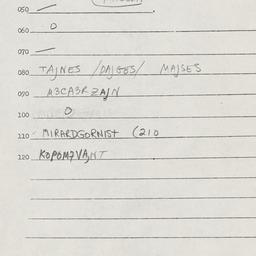 050 —
060 O
070 —
080 TAJNES /DAJGES/ MAJSES
090 A3CA3R ZAJN
100 O
110 MIRARDGORNIST (210
120